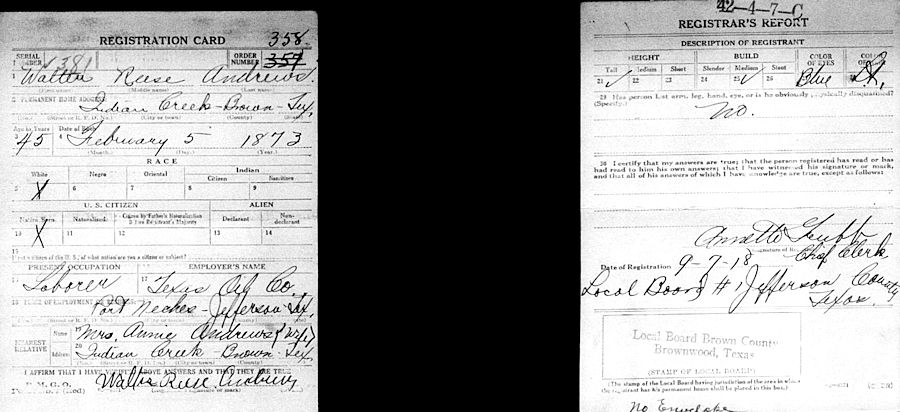 REGISTRATION CARD 358
SERIAL NUMBER 381 ORDER NUMBER 351
1 Walter Reese Andrews.
(First name) (Middle name) (Last name)
2 PERMANENT HOME ADDRESS:
Indian Creek - Brown - Tex,
(No.) (Street or R. F. D. No.) (City or town) (County) (State)
Age in Years Date of Birth
3 45 4 February 5 1873
(Month.) (Day.) (Year.)
RACE
White Negro Oriental Indian
Citizen Noncitizen
5 X 6 7 8 9
U. S. CITIZEN ALIEN
Native Born Naturalized Citizen by Father's Naturalization Before Registrant's Majority Declarant Non-declarant
10 X 11 12 13 14
15
If not a citizen of the U. S., of what nation are you a citizen or subject?
PRESENT OCCUPATION EMPLOYER'S NAME
16 Laborer 17 Texas Co
18 PLACE OF EMPLOYMENT OR BUSINESS:
Port Neches - Jefferson - Tex,
(No.) (Street or R. F. D. No.) (City or town) (County) (State)
NEAREST RELATIVE Name 19 Mrs. Annie Andrews (Wife)
Address 20 Indian Creek - Brown - Tex,
(No.) (Street or R. F. D. No.) (City or town) (County) (State)
I AFFIRM THAT I HAVE VERIFIED ABOVE ANSWERS AND THAT THEY ARE TRUE
P. M. G. O.
Form No. 1 (Red) Walter Reese Andrews
(Registrant's signature or mark)
42-4-7-C
REGISTRAR'S REPORT
DESCRIPTION OF REGISTRANT
HEIGHT BUILD COLOR OF EYES COLOR OF HAIR
Tall Medium Short Slender Medium Stout
21 ✓ 22 23 24 25 ✓ 26 27 Blue 28
29 Has person lost arm, leg, hand, eye, or is he obviously physically disqualified?
(Specify.)
No.
30 I certify that my answers are true; that the person registered has read or has
had read to him his own answers; that I have witnessed his signature or mark,
and that all of his answers of which I have knowledge are true, except as follows:
Annette
(Signature of Registrar)
Chief Clerk
Date of Registration 9-7-18
Local Board #1 Jefferson County
Texas.
Local Board Brown County
Brownwood, Texas
(STAMP OF LOCAL BOARD)
(The stamp of the Local Board having jurisdiction of the area in which
the registrant has his permanent home shall be placed in this box.)
No Envelope